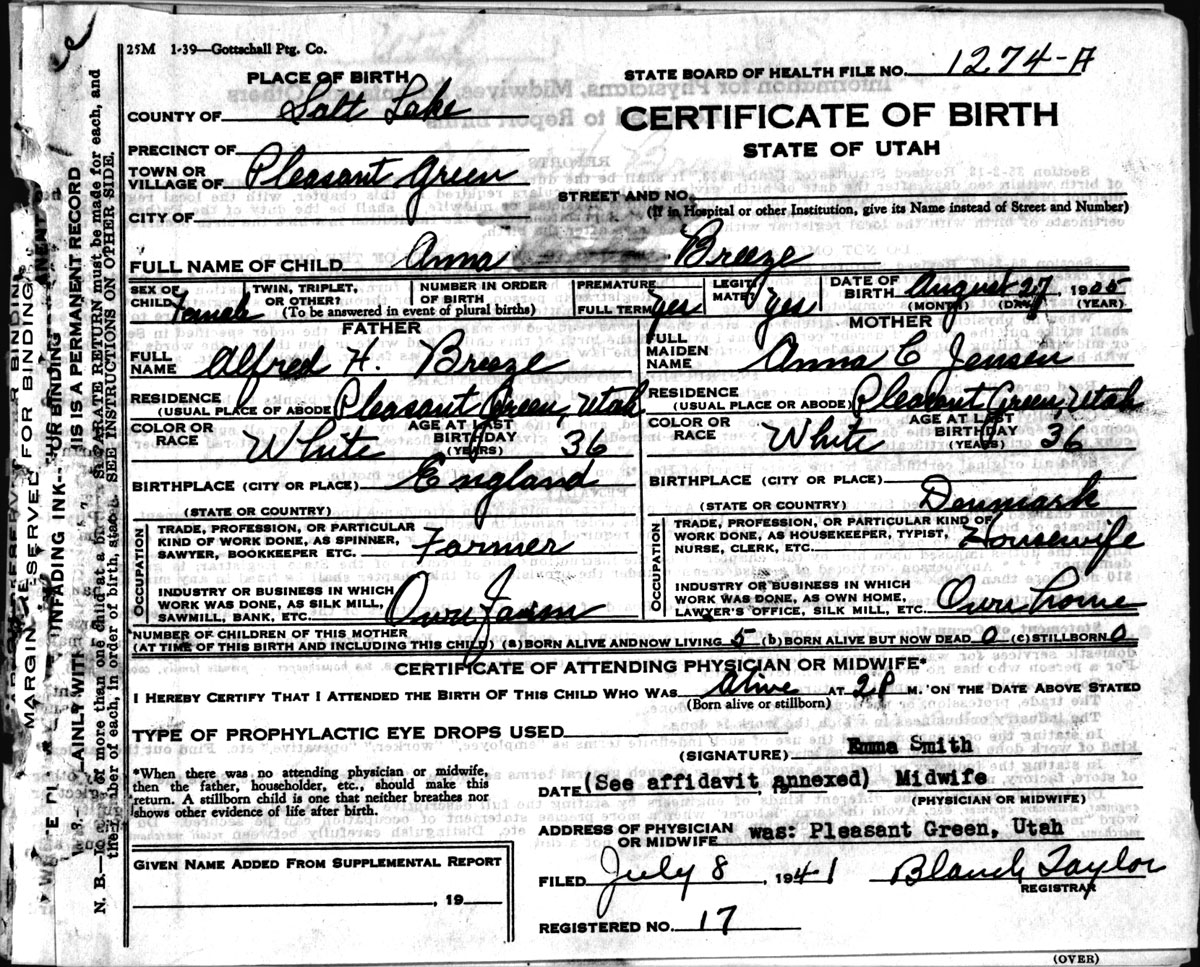 25M 1-39—Gottschall Ptg. Co.
PLACE OF BIRTH
COUNTY OF Salt Lake
PRECINCT OF
TOWN OR VILLAGE OF Pleasant Green
CITY OF
STATE BOARD OF HEALTH FILE NO. 1274-A
CERTIFICATE OF BIRTH
STATE OF UTAH
STREET AND NO.
(If in Hospital or other Institution, give its Name instead of Street and Number)
FULL NAME OF CHILD Anna Breeze
SEX OF CHILD Female
TWIN, TRIPLET, OR OTHER?
NUMBER IN ORDER OF BIRTH
(To be answered in event of plural births)
PREMATURE
FULL TERM Yes
LEGITIMATE? Yes
DATE OF BIRTH August 27 1905
(MONTH) (DAY) (YEAR)
FATHER
FULL NAME Alfred H. Breeze
RESIDENCE (USUAL PLACE OF ABODE) Pleasant Green, Utah
COLOR OR RACE White
AGE AT LAST BIRTHDAY (YEARS) 36
BIRTHPLACE (CITY OR PLACE) England
(STATE OR COUNTRY)
OCCUPATION
TRADE, PROFESSION, OR PARTICULAR KIND OF WORK DONE, AS SPINNER, SAWYER, BOOKKEEPER ETC. Farmer
INDUSTRY OR BUSINESS IN WHICH WORK WAS DONE, AS SILK MILL, SAWMILL, BANK, ETC. Own Farm
MOTHER
FULL MAIDEN NAME Anna C Jensen
RESIDENCE (USUAL PLACE OF ABODE) Pleasant Green, Utah
COLOR OR RACE White
AGE AT LAST BIRTHDAY (YEARS) 36
BIRTHPLACE (CITY OR PLACE)
(STATE OR COUNTRY) Denmark
OCCUPATION
TRADE, PROFESSION, OR PARTICULAR KIND OF WORK DONE, AS HOUSEKEEPER, TYPIST, NURSE, CLERK, ETC. Housewife
INDUSTRY OR BUSINESS IN WHICH WORK WAS DONE, AS OWN HOME, LAWYER'S OFFICE, SILK MILL, ETC. Own home
NUMBER OF CHILDREN OF THIS MOTHER
(AT TIME OF THIS BIRTH AND INCLUDING THIS CHILD) (a) BORN ALIVE AND NOW LIVING 5 (b) BORN ALIVE BUT NOW DEAD 0 (c) STILLBORN 0
CERTIFICATE OF ATTENDING PHYSICIAN OR MIDWIFE*
I HEREBY CERTIFY THAT I ATTENDED THE BIRTH OF THIS CHILD WHO WAS Alive AT 2 P M. ON THE DATE ABOVE STATED
(Born alive or stillborn)
TYPE OF PROPHYLACTIC EYE DROPS USED
(SIGNATURE) Emma Smith
DATE (See affidavit annexed) Midwife
(PHYSICIAN OR MIDWIFE)
ADDRESS OF PHYSICIAN OR MIDWIFE was: Pleasant Green, Utah
*When there was no attending physician or midwife,
then the father, householder, etc., should make this
return. A stillborn child is one that neither breathes nor
shows other evidence of life after birth.
GIVEN NAME ADDED FROM SUPPLEMENTAL REPORT
, 19
FILED July 8, 1941 Blanch Taylor
REGISTRAR
REGISTERED NO. 17
(OVER)
MARGIN RESERVED FOR BINDING
UNFADING INK
THIS IS A PERMANENT RECORD
N. B.—
SEE INSTRUCTIONS ON OTHER SIDE.